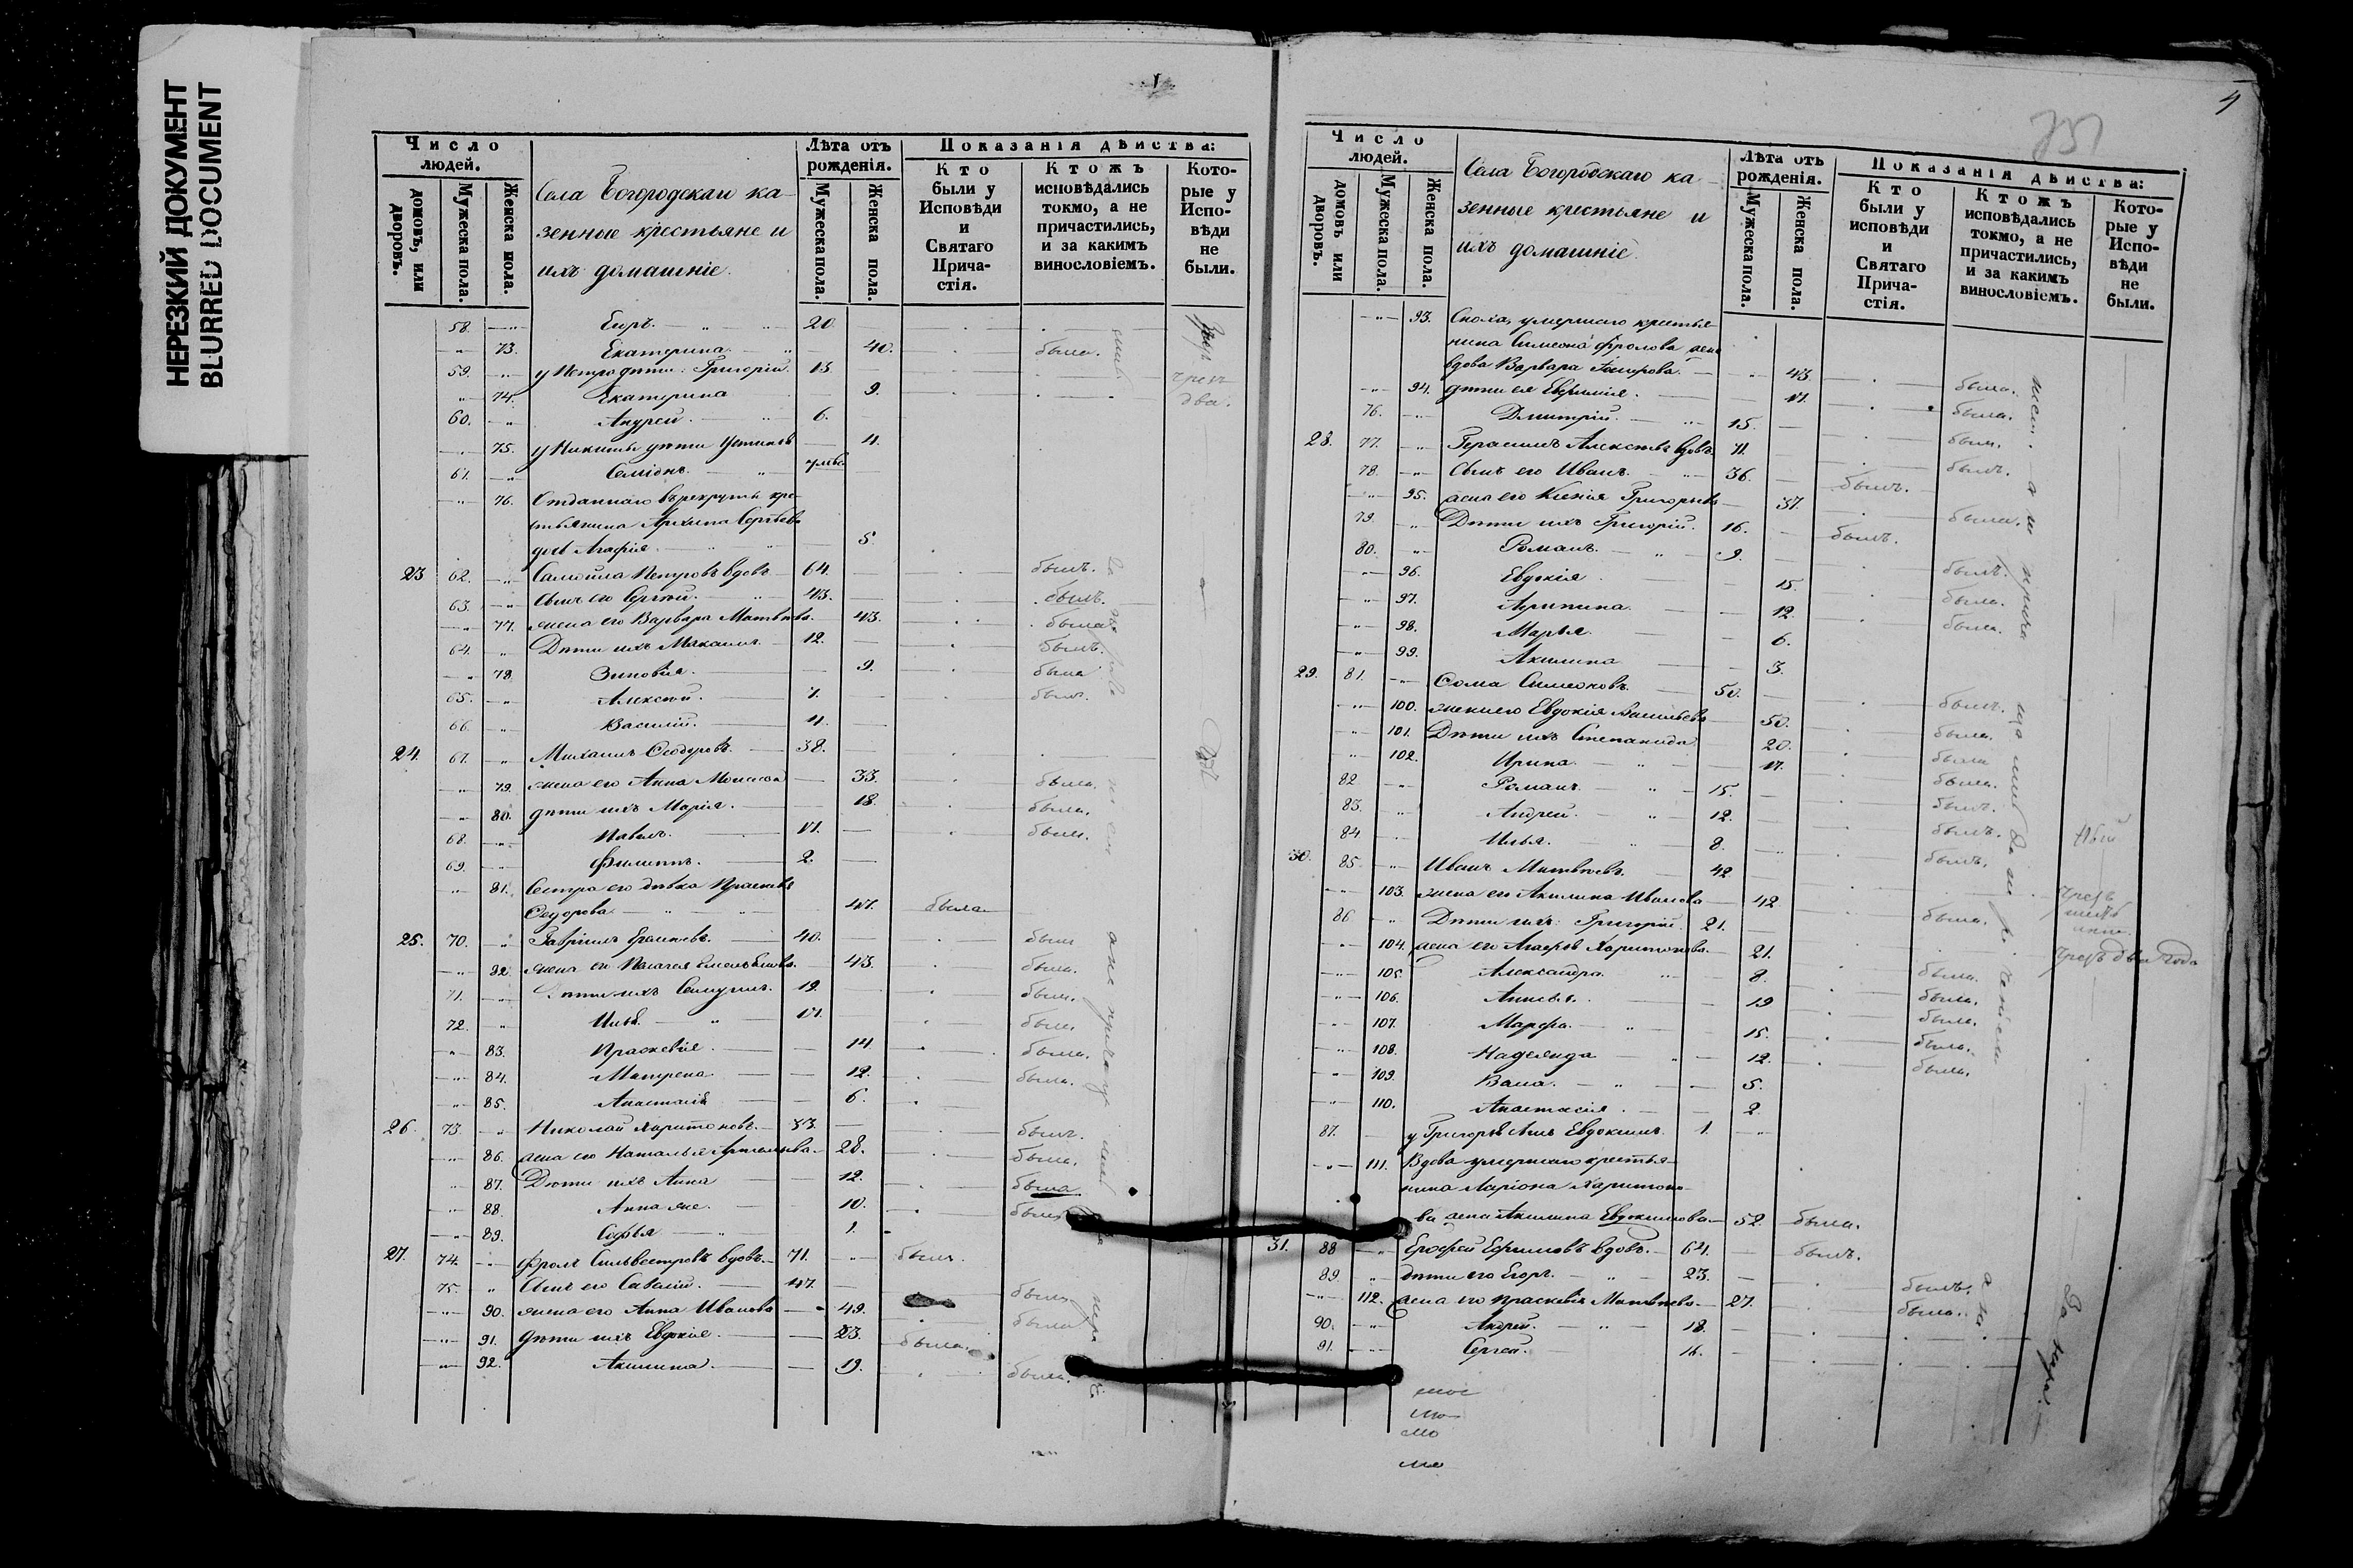 НЕРЕЗКИЙ ДОКУМЕНТ
BLURRED DOCUMENT
Число людей.
домовъ, или дворовъ.
Мужеска пола.
Женска пола.
Села Богородскаго ка-
зенные крестьяне и
ихъ домашніе.
Лѣта отъ рожденія.
Мужеска пола.
Женска пола.
Показанія дѣйства:
Кто были у Исповѣди и Святаго Прича-стія.
Ктожъ исповѣдались токмо, а не причастились, и за какимъ винословіемъ.
Кото-рые у Испо-вѣди не были.
58. Егоръ. 20.
73. Екатерина 40. была.
59. у Петра дѣти: Григорій. 13
74. Екатерина 9.
60. Андрей. 6.
75. у Никиты дѣти 4.
61. Семіонъ.
76. Отданнаго въ рекруты кре-
стьянина Архипа Сергѣева
дочь Агафія. 5
23 62. Самойла Петровъ вдовъ 64. былъ.
63. Сынъ его Сергѣй. 43. былъ.
77. жена его Варвара Матвѣева. 43. была
64. Дѣти ихъ Максимъ 12. былъ.
78. Зиновія. 9. была
65. Алексѣй. 7. былъ.
66. Василій. 4.
24. 67. Михаилъ Ѳеодоровъ. 38.
79. жена его Анна 33. была.
80. дѣти ихъ Марія. 18. была.
68. Павелъ. 17. былъ.
69. Филиппъ. 2.
81. Сестра его дѣвка
Ѳедорова 47. была
25. 70. Гавріилъ 40. былъ
82. жена его Пелагея Емельянова. 43. была.
71. Дѣти ихъ 19. былъ.
72. Илья. 17. былъ.
83. Праскевія. 14. была.
84. Матрена 12. была.
85. Анастасія 6.
26. 73. Николай Харитоновъ. 33. былъ.
86. жена его Наталья 28. была.
87. Дѣти ихъ Анна 12. была
88. Анна же. 10. была
89. Софья 1.
27. 74. Фролъ Сильвестровъ вдовъ. 71. былъ.
75. Сынъ его Савелій. 47. былъ
90. жена его Анна Иванова 49. была
91. дѣти ихъ Евдокія. 23. была.
92. Акилина. 19. была.
4
751
Число людей.
домовъ или дворовъ.
Мужеска пола.
Женска пола.
Села Богородскаго ка-
зенные крестьяне и
ихъ домашніе.
Лѣта отъ рожденія.
Мужеска пола.
Женска пола.
Показанія дѣйства:
Кто были у исповѣди и Святаго Прича-стія.
Ктожъ исповѣдались токмо, а не причастились, и за какимъ винословіемъ.
Кото-рые у Испо-вѣди не были.
93. умершаго крестья-
нина Симеона Фролова жена
вдова Варвара 43. была.
94. дѣти ея Евфимія. 17. была.
76. Дмитрій. 15. былъ.
28. 77. Герасимъ Алексѣевъ вдовъ 71. былъ.
78. Сынъ его Иванъ. 36. былъ.
95. жена его Ксенія Григорьева 37. была.
79. Дѣти ихъ Григорій. 16. былъ.
80. Романъ. 9. былъ.
96. Евдокія 15. была.
97. Агрипина. 12. была.
98. Марья. 6.
99. Акилина 3.
29. 81. Ѳома Симеоновъ. 50. былъ.
100. жена его Евдокія Васильева 50. была.
101. Дѣти ихъ Степанида 20. была
102. Ирина. 17. была.
82 Романъ. 15. былъ.
83. Андрей. 12. былъ.
84 Илья. 8. былъ.
30. 85. Иванъ Матвѣевъ. 42.
103. жена его Акилина Иванова 42 была.
86 Дѣти ихъ: Григорій. 21.
104. жена его Агафья Харитонова. 21. была. чрезъ два года
105. Александра. 8. была.
106. 19 была.
107. Марфа. 15. была.
108. Надежда 12. была.
109. 5.
110. Анастасія. 2
87. у Григорья сынъ Евдокимъ. 1.
111. Вдова умершаго крестья-
нина Ларіона Харитоно-
ва жена Акилина Евдокимова. 52. была.
31. 88 Ерофей Ефимовъ вдовъ. 64. былъ.
89. дѣти его Егоръ. 23. былъ.
112. жена его Праскевія Матвѣева. 27. была.
90. Андрей. 18.
91. Сергей. 16.